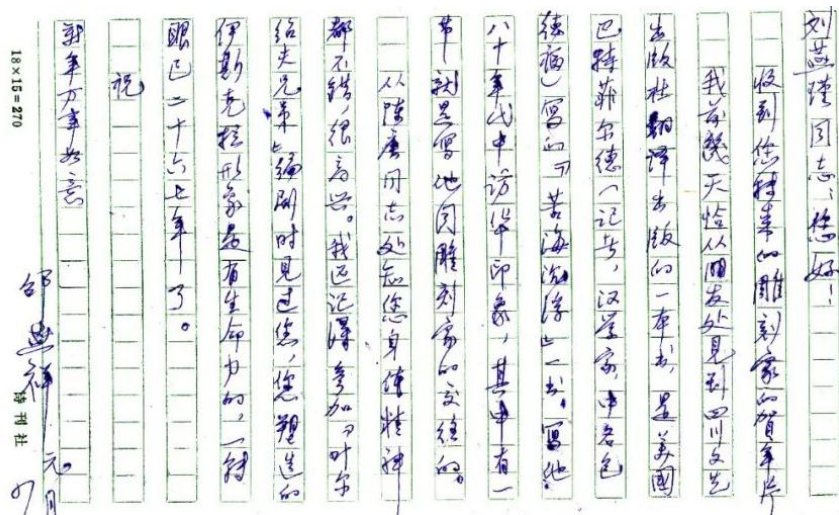 刘燕瑾同志:您好!
收到您转来的雕刻家的贺年片
我前幾天恰从朋友处見到四川文艺
出版社翻译出版的一本书,是美國
巴特菲尔德(记者,汉学家,中名包
德福)写的『苦海沉浮』一书。寫他
八十年代中访华印象,其中有一
节就是寫他同雕刻家的交往的。
从陈庚同志处知您身体精神
都不錯,很高兴。我还记得参加『叶尔
绍夫兄弟』编剧时見过您,您塑造的
伊斯克拉形象是有生命力的,一转
眼已二十六七年了。
祝
新年万事如意
邵燕祥 元月
诗刊社
18×15=270